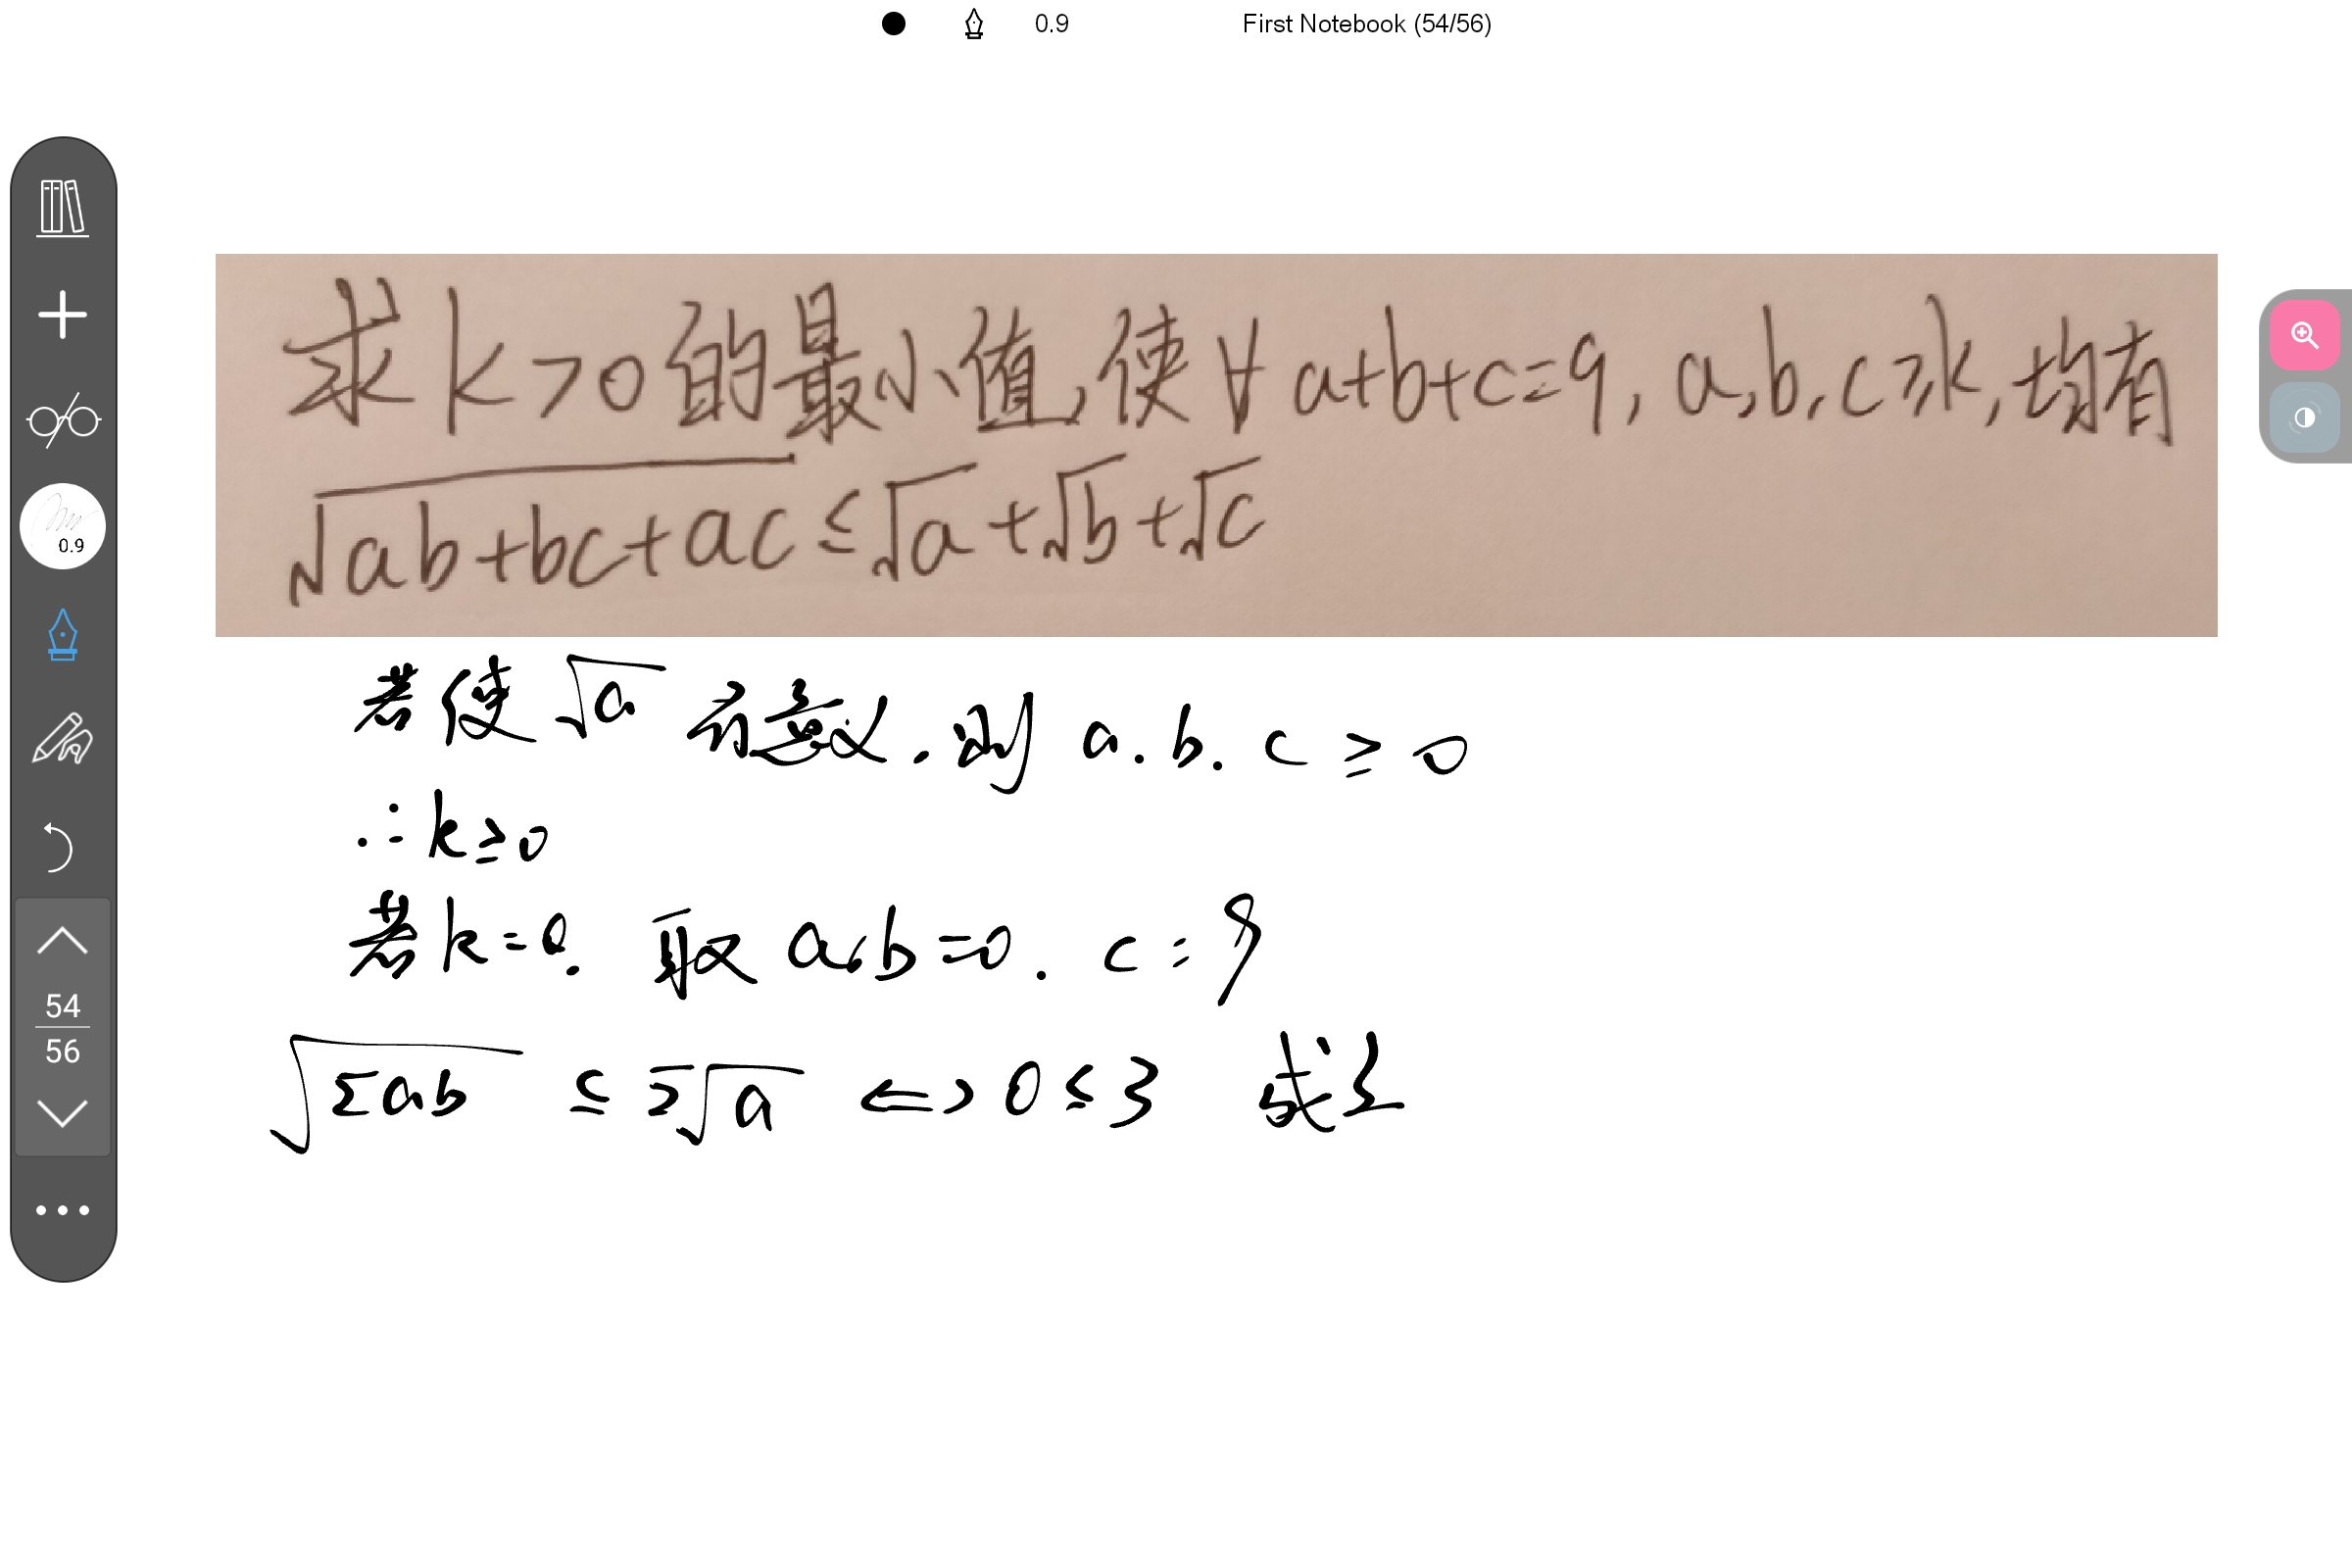 0.9 First Notebook (54/56)
求k>0的最小值,使∀a+b+c=9, a,b,c≥k,均有
√ab+bc+ac ≤ √a+√b+√c
0.9
若使 √a 有意义,则 a.b.c ≥ 0
∴ k≥0
若k=0. 取 a,b=0. c=9
√Σab ≤ Σ√a <=> 0≤3 成立
54
56